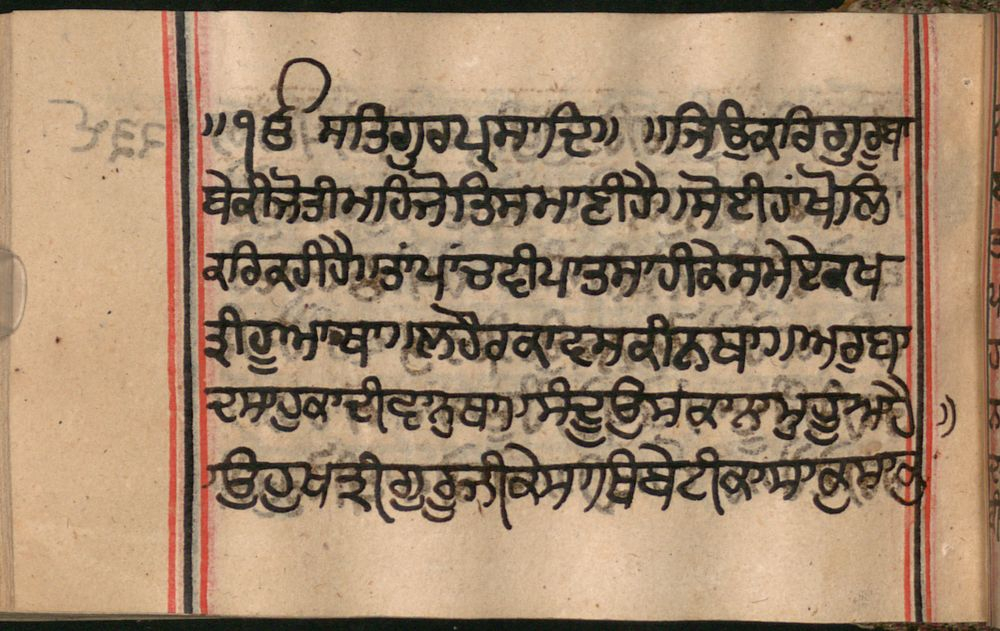 ॥ੴ ਸਤਿਗੁਰਪ੍ਰਸਾਦਿ॥ ॥ਜਿਉਕਰਿਗੁਰੂਬਾ
ਬੇਕੀਜੋਤੀਮਹਿਜੋਤਿਸਮਾਣੀਹੈ॥ਸੋਈਹਾਂਖੋਲਿ
ਕਰਿਕਹੀਹੈ॥ਤਾਂਪਾਂਚਵੀਪਾਤਸਾਹੀਕੇਸਮੇਏਕਖ
ਤ੍ਰੀਹੂਆਥਾ॥ਲਹੌਰਕਾਵਸਕੀਨਥਾ॥ਅਰੁਬਾ
ਦਸਾਹੁਕਾਦੀਵਾਨੁਥਾ॥ਸੰਦੂਉਸਕਾਨਾਮੁਹੂਆਹੈ॥
ਉਹੁਖਤ੍ਰੀਗੁਰੂਜੀਕੇਸਾਥਿਬੇਟੀਕਾਸਾਕੁਸਾਕੁ